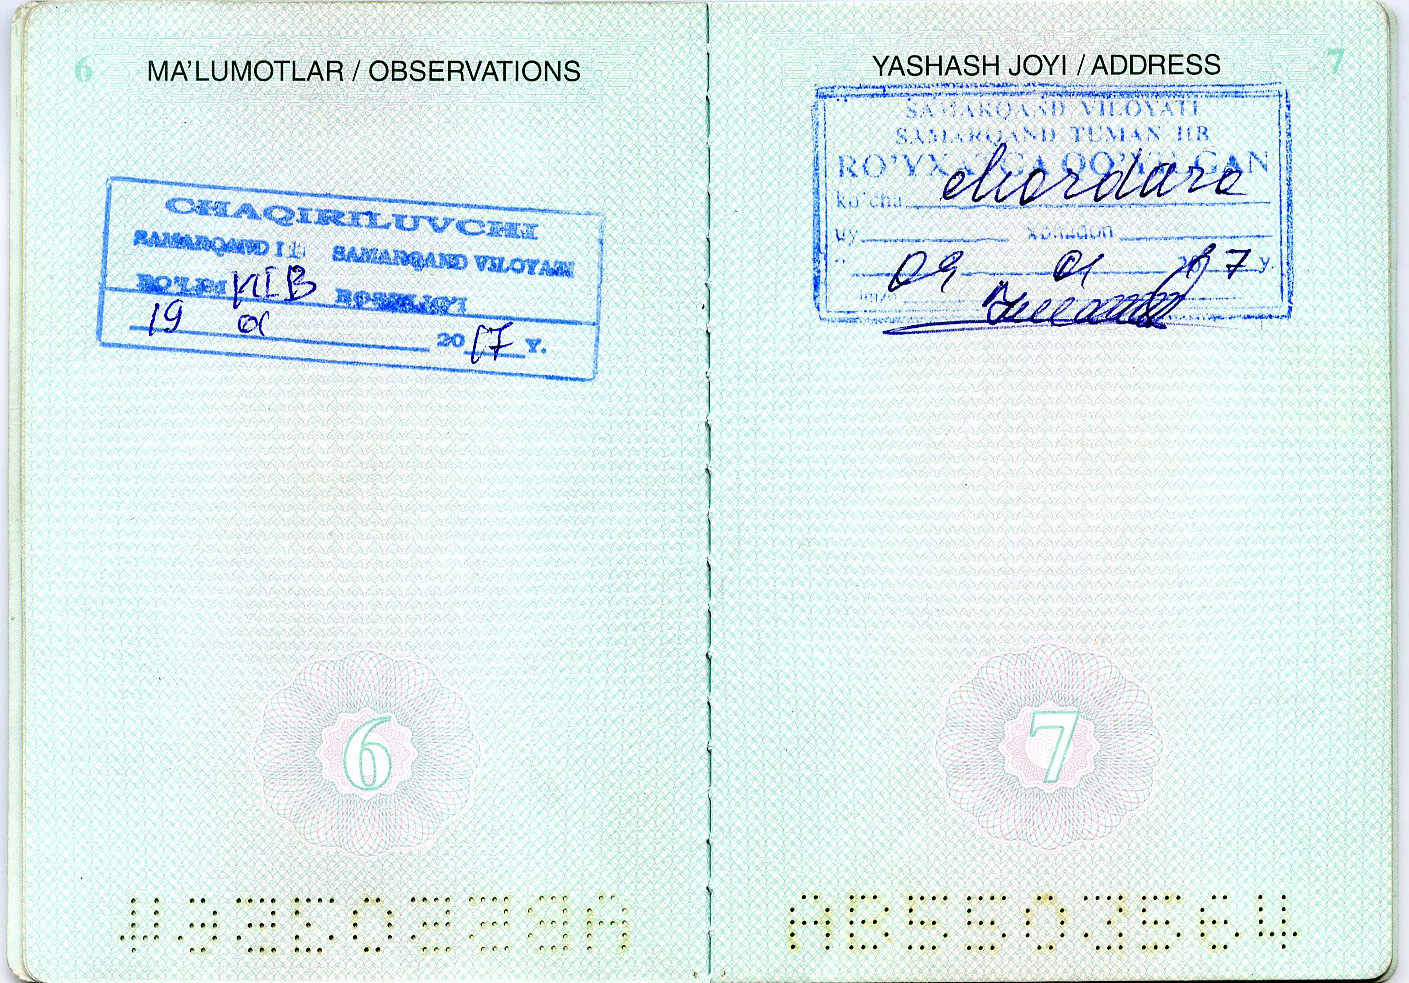 6
MA'LUMOTLAR / OBSERVATIONS
CHAQIRILUVCHI
SAMARQAND SAMARQAND VILOYATI
BO'LIMI IIB BOSHLIG'I
19 01 2017 Y.
6
YASHASH JOYI / ADDRESS
7
SAMARQAND VILOYATI
SAMARQAND TUMAN IIB
RO'YXATGA QO'YILGAN
ko'cha chordara
uy xonadon
" 09 01 2017 y.
imzo
7
AB5503564